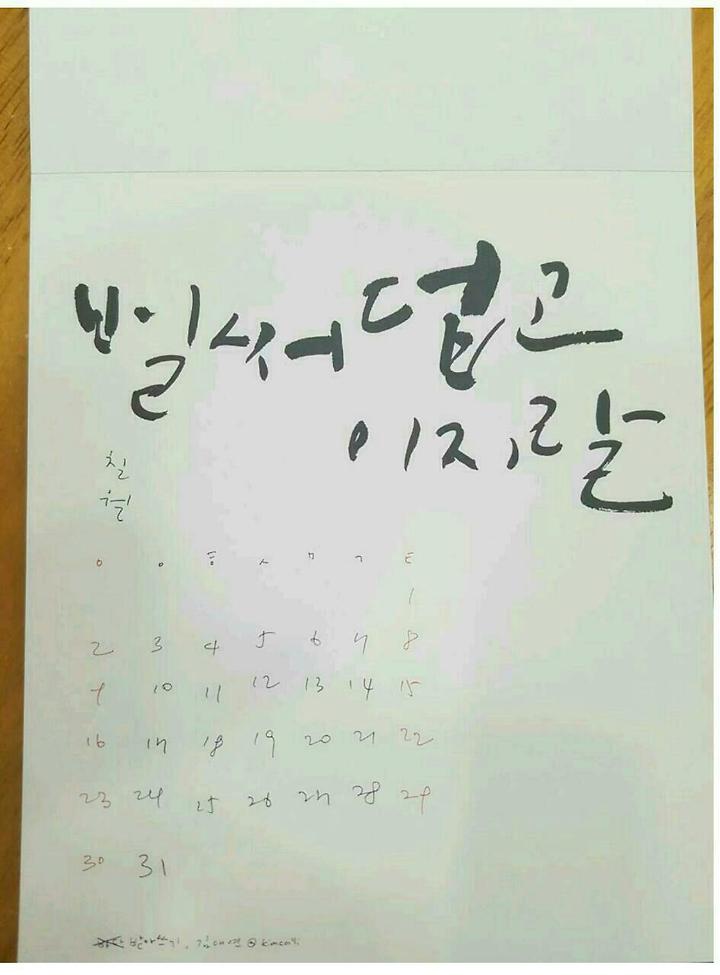 벌써 덥고
이지랄
칠
월
ㅇ ㅇ ㅎ ㅅ ㅁ ㄱ ㅌ
1
2 3 4 5 6 7 8
9 10 11 12 13 14 15
16 17 18 19 20 21 22
23 24 25 26 27 28 29
30 31
받아쓰기.